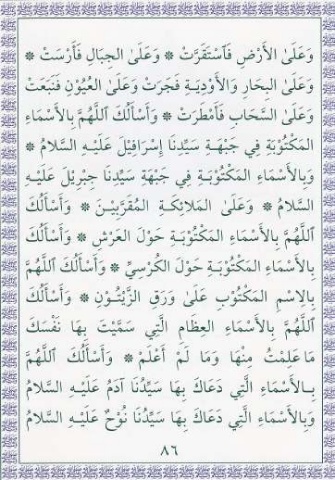 وَعَلَى الأَرْضِ فَاسْتَقَرَّتْ * وَعَلَى الجِبَالِ فَأَرْسَتْ *
وَعَلَى البِحَارِ وَالأَوْدِيَةِ فَجَرَتْ وَعَلَى العُيُونِ فَنَبَعَتْ
وَعَلَى السَّحَابِ فَأَمْطَرَتْ * وَأَسْأَلُكَ اللَّهُمَّ بِالأَسْمَاءِ
المَكْتُوبَةِ فِي جَبْهَةِ سَيِّدِنَا إِسْرَافِيلَ عَلَيْهِ السَّلامُ *
وَبِالأَسْمَاءِ المَكْتُوبَةِ فِي جَبْهَةِ سَيِّدِنَا جِبْرِيلَ عَلَيْهِ
السَّلامُ * وَعَلَى المَلائِكَةِ المُقَرَّبِيْنَ * وَأَسْأَلُكَ
اللَّهُمَّ بِالأَسْمَاءِ المَكْتُوبَةِ حَوْلَ العَرْشِ * وَأَسْأَلُكَ
بِالأَسْمَاءِ المَكْتُوبَةِ حَوْلَ الكُرْسِيِّ * وَأَسْأَلُكَ اللَّهُمَّ
بِالِاسْمِ المَكْتُوبِ عَلَى وَرَقِ الزَّيْتُونِ * وَأَسْأَلُكَ
اللَّهُمَّ بِالأَسْمَاءِ العِظَامِ الَّتِي سَمَّيْتَ بِهَا نَفْسَكَ
مَا عَلِمْتُ مِنْهَا وَمَا لَمْ أَعْلَمْ * وَأَسْأَلُكَ اللَّهُمَّ
بِالأَسْمَاءِ الَّتِي دَعَاكَ بِهَا سَيِّدُنَا آدَمُ عَلَيْهِ السَّلامُ
وَبِالأَسْمَاءِ الَّتِي دَعَاكَ بِهَا سَيِّدُنَا نُوْحٌ عَلَيْهِ السَّلامُ
٨٦